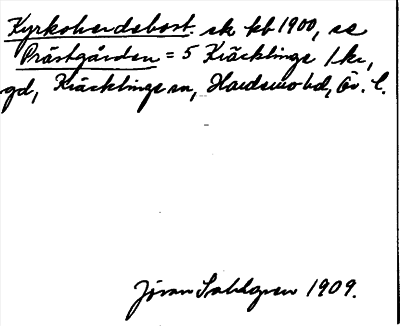 Kyrkoherdebost. sk kb 1900, se
Prästgården = 5 Kräcklinge 1 kr,
gd, Kräcklinge sn, Hardemo hd, Ör. l.
Jöran Sahlgren 1909.